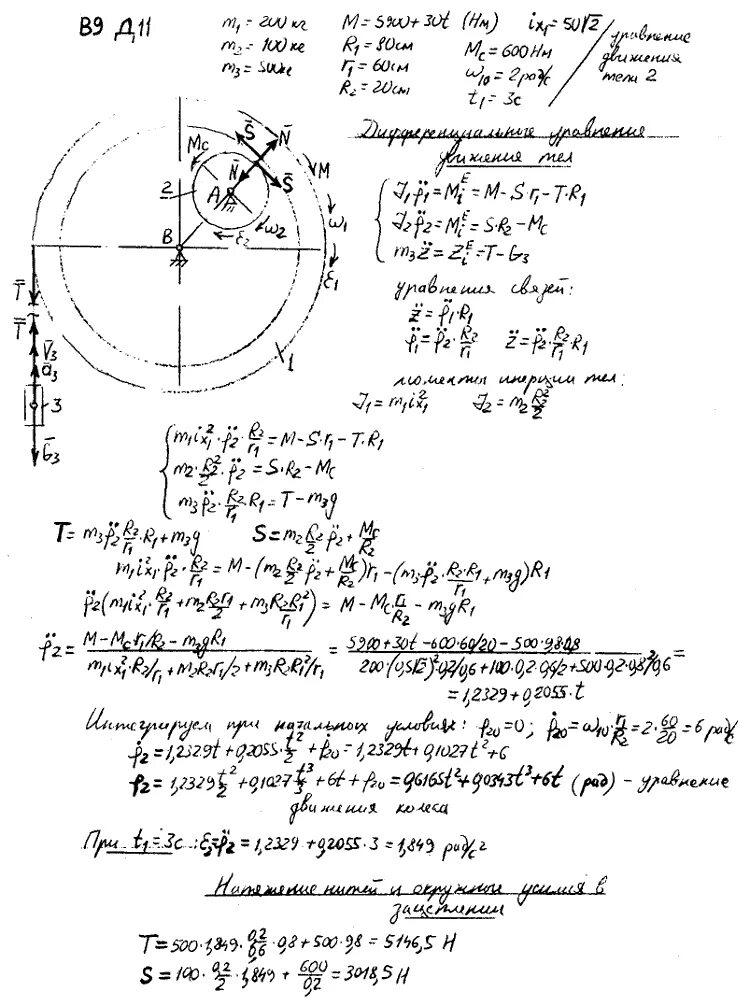 В9 Д11
m₁ = 200 кг   M = 5900 + 30t (Нм)   ix₁ = 50√2
m₂ = 100 кг   R₁ = 80 см   Mc = 600 Нм
m₃ = 500 кг   r₁ = 60 см   ω₁₀ = 2 рад/с
R₂ = 20 см   t₁ = 3 с
уравнение
движения
тела 2
Дифференциальные уравнения
движения тел
J₁φ̈₁ = Mᵢᴱ = M - S·r₁ - T·R₁
J₂φ̈₂ = Mᵢᴱ = S·R₂ - Mc
m₃z̈ = Zᵢᴱ = T - G₃
уравнения связей:
z̈ = φ̈₁·R₁
φ̈₁ = φ̈₂·R₂/r₁   z̈ = φ̈₂·R₂/r₁·R₁
моменты инерции тел:
J₁ = m₁ix₁²   J₂ = m₂R₂²/2
Mc S̄ N̄ M
N̄ S̄
2 A
ω₂ ω₁
B ε₂ ε₁
T̄
T̄
V̄₃
ā₃ 1
3
Ḡ₃
m₁ix₁²·φ̈₂·R₂/r₁ = M - S·r₁ - T·R₁
m₂·R₂²/2·φ̈₂ = S·R₂ - Mc
m₃φ̈₂·R₂/r₁·R₁ = T - m₃g
T = m₃φ̈₂R₂/r₁·R₁ + m₃g   S = m₂R₂/2φ̈₂ + Mc/R₂
m₁ix₁²·φ̈₂·R₂/r₁ = M - (m₂R₂/2φ̈₂ + Mc/R₂)r₁ - (m₃φ̈₂·R₂·R₁/r₁ + m₃g)R₁
φ̈₂(m₁ix₁²·R₂/r₁ + m₂R₂r₁/2 + m₃R₂R₁²/r₁) = M - Mc r₁/R₂ - m₃gR₁
φ̈₂ = (M - Mc r₁/R₂ - m₃gR₁)/(m₁ix₁²·R₂/r₁ + m₂R₂r₁/2 + m₃R₂R₁²/r₁) = (5900 + 30t - 600·60/20 - 500·9,8·0,8)/(200·(0,5√2)²·0,2/0,6 + 100·0,2·0,6/2 + 500·0,2·0,8²/0,6) =
= 1,2329 + 0,2055·t
Интегрируем при начальных условиях: φ₂₀ = 0; φ̇₂₀ = ω₁₀·r₁/R₂ = 2·60/20 = 6 рад/с
φ̇₂ = 1,2329t + 0,2055·t²/2 + φ̇₂₀ = 1,2329t + 0,1027t² + 6
φ₂ = 1,2329t²/2 + 0,1027t³/3 + 6t + φ₂₀ = 0,6165t² + 0,0343t³ + 6t (рад) - уравнение
движения колеса
При t₁ = 3с : ε₂ = φ̈₂ = 1,2329 + 0,2055·3 = 1,849 рад/с²
Натяжение нитей и окружные усилия в
зацеплении
T = 500·1,849·0,2/0,6·0,8 + 500·9,8 = 5146,5 Н
S = 100·0,2/2·1,849 + 600/0,2 = 3018,5 Н